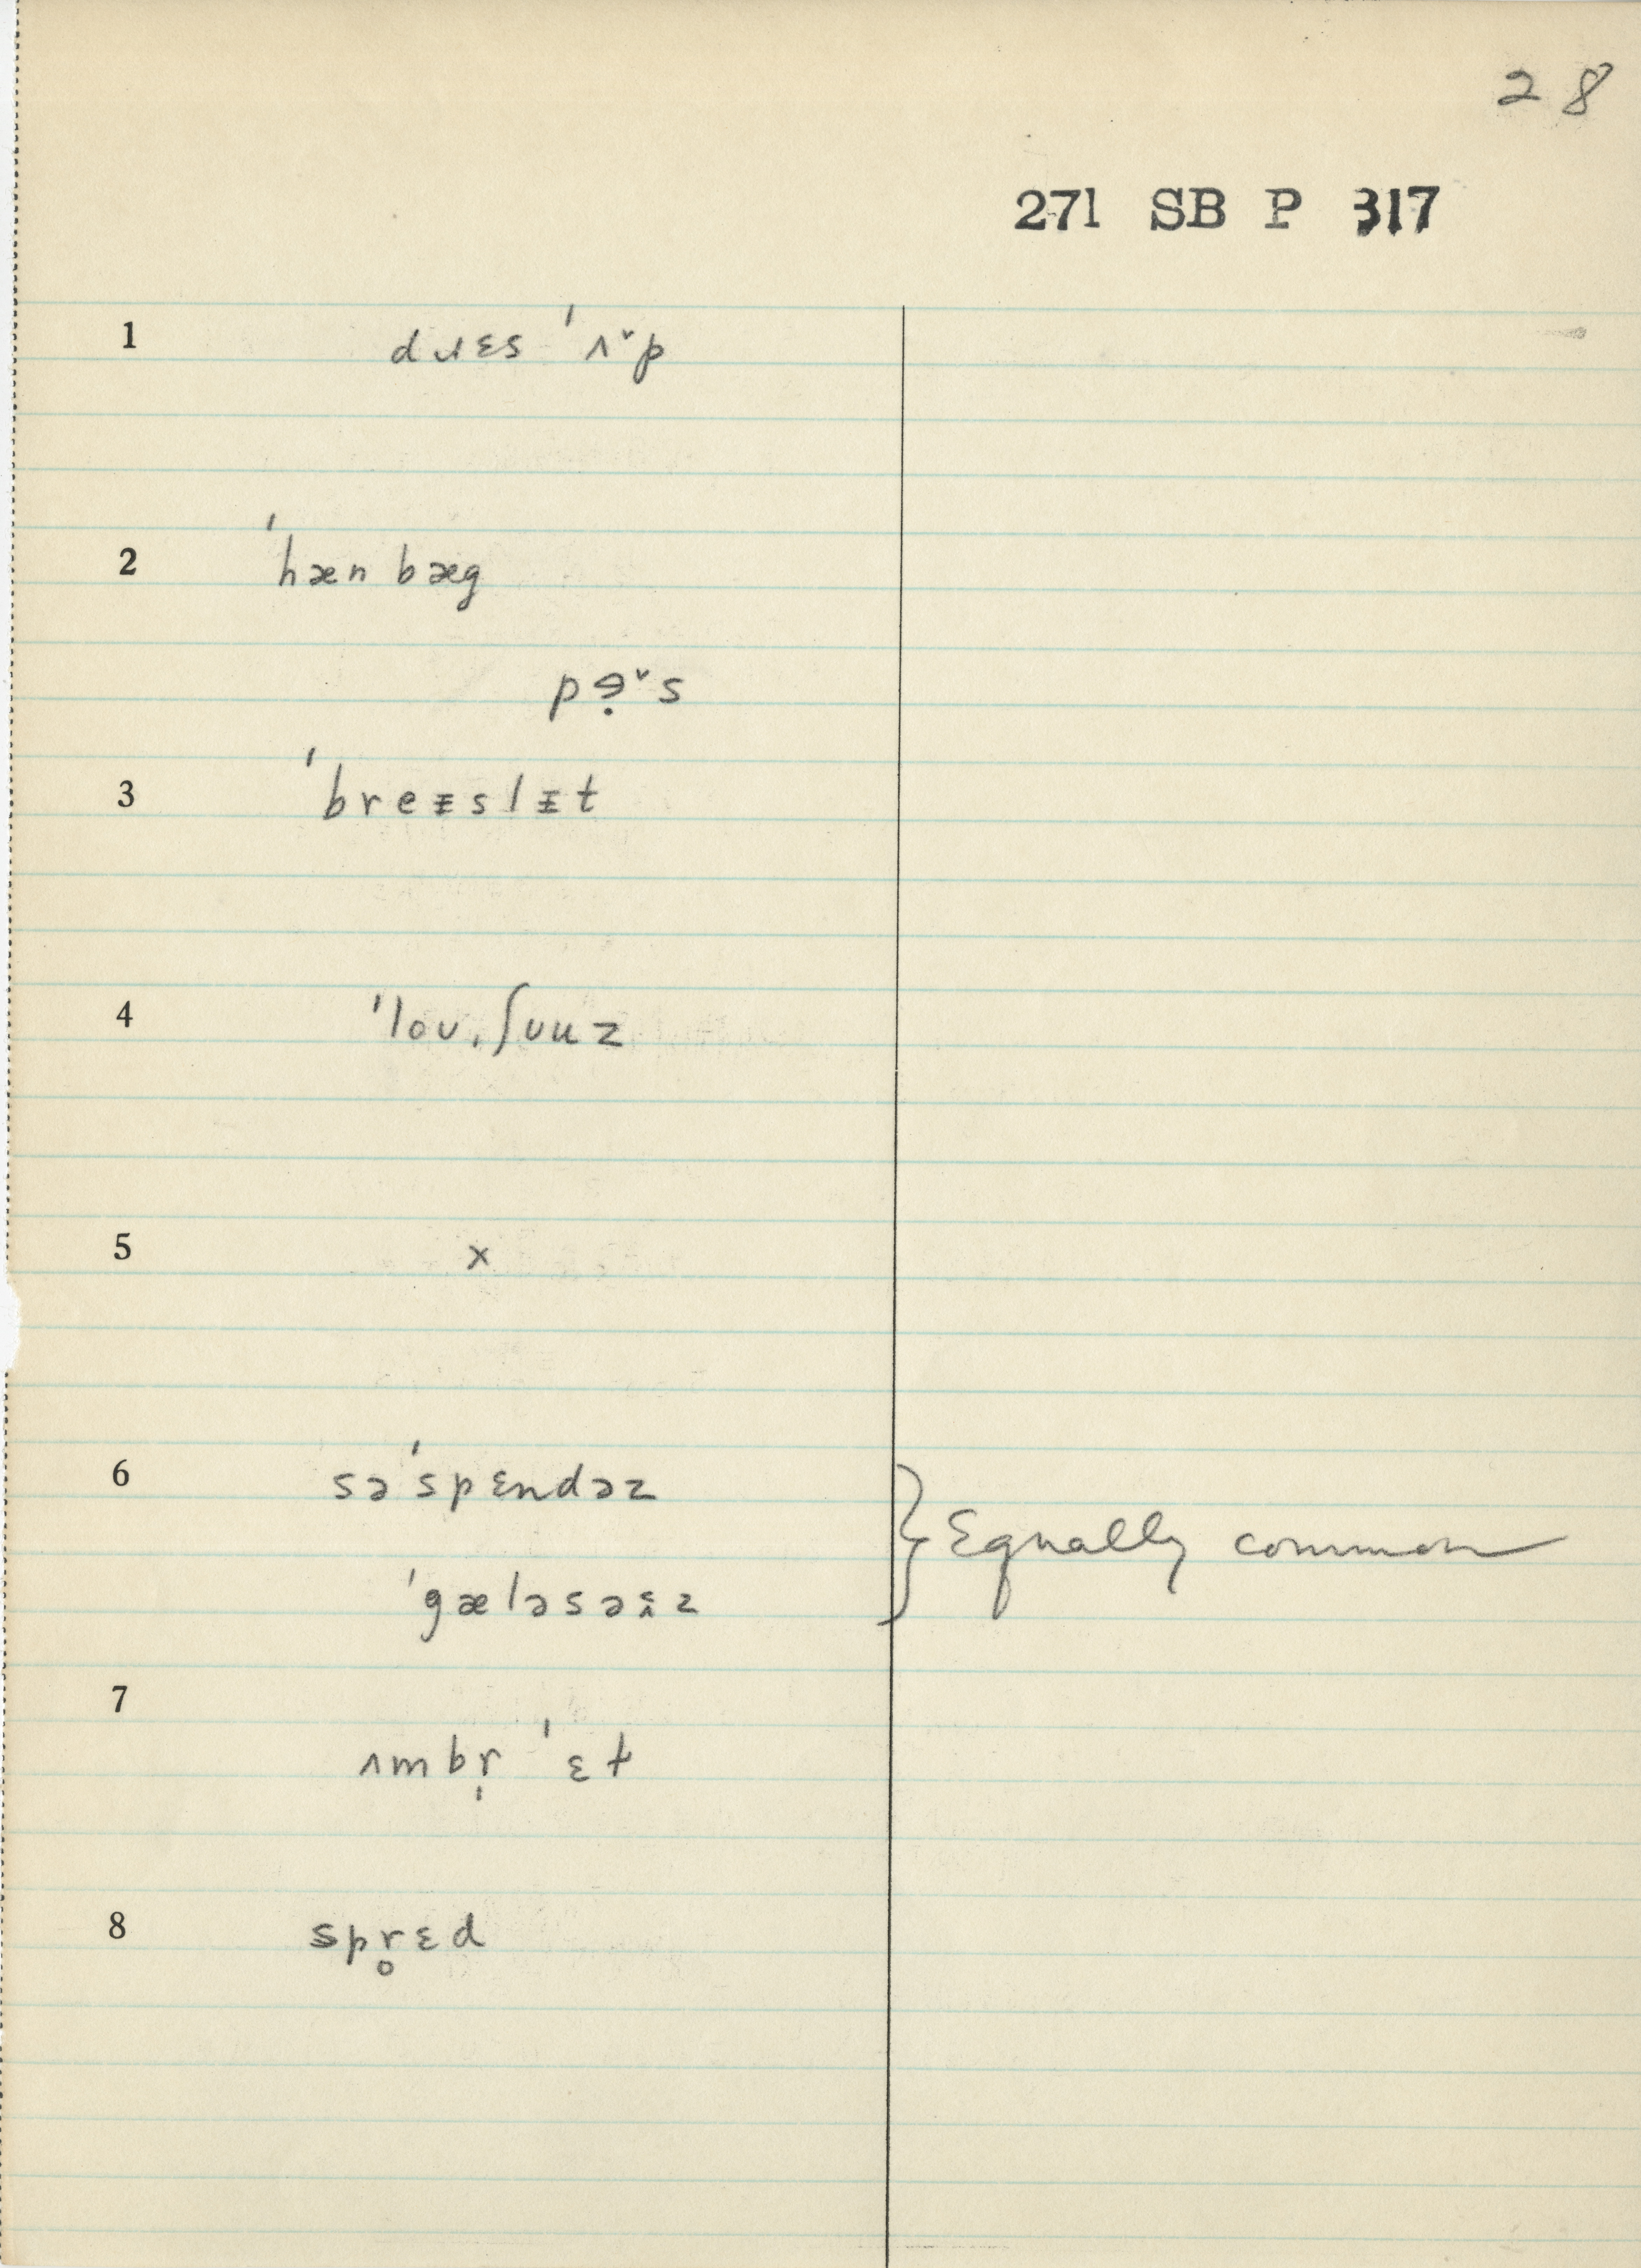 28
271 SB P 317
1 dɹɛs ˈʌ˅p
2 ˈhæn bæg
pɘ̣˅s
3 ˈbreɪslɪt
4 ˈloʊˌʃʊuz
5 x
6 səˈspɛndəz
ˈgæləsəɛ̭z
} Equally common
7
ʌmbr̩ ˈɛt
8 spr̥ɛd